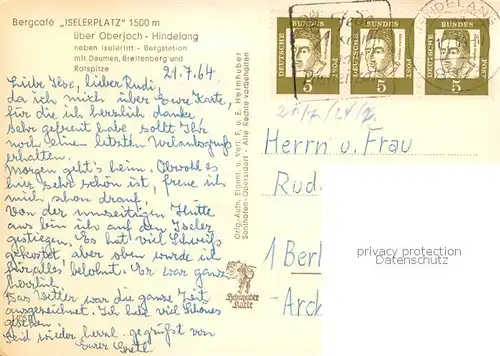 Bergcafé „ISELERPLATZ" 1500 m
über Oberjoch - Hindelang
neben Iselerlift - Bergstation
mit Daumen, Breitenberg und
Rotspitze
21.7.64
Liebe Ilse, lieber Rudi,
da ich mich über Eure Karte,
für die ich herzlich danke
sehr gefreut habe sollt Ihr
noch einen letzten Urlaubsgruß
erhalten.
Morgen geht's heim. Obwohl es
hier sehr schön ist, freue ich
mich schon drauf.
Von der umseitigen Hütte
aus bin ich auf den Iseler
gestiegen. Es hat viel Schweiß
gekostet, aber oben wurde ich
für alles belohnt. Es war ganz
herrlich.
Das Wetter war die ganze Zeit
ausgezeichnet. Ich habe viel Schönes
gesehen.
Seid wieder herzl. gegrüßt von
Eurer
Orig.-Aufn. Eigent. u. Verl. F. u. E. Heimhuber
Sonthofen-Oberstdorf - Alle Rechte vorbehalten
Heimhuber
Karte
DEUTSCHE BUNDESPOST 5
DEUTSCHE BUNDESPOST 5
DEUTSCHE BUNDESPOST 5
HINDELANG
Herrn u. Frau
Rud.
1 Berl
Arc
privacy protection
Datenschutz